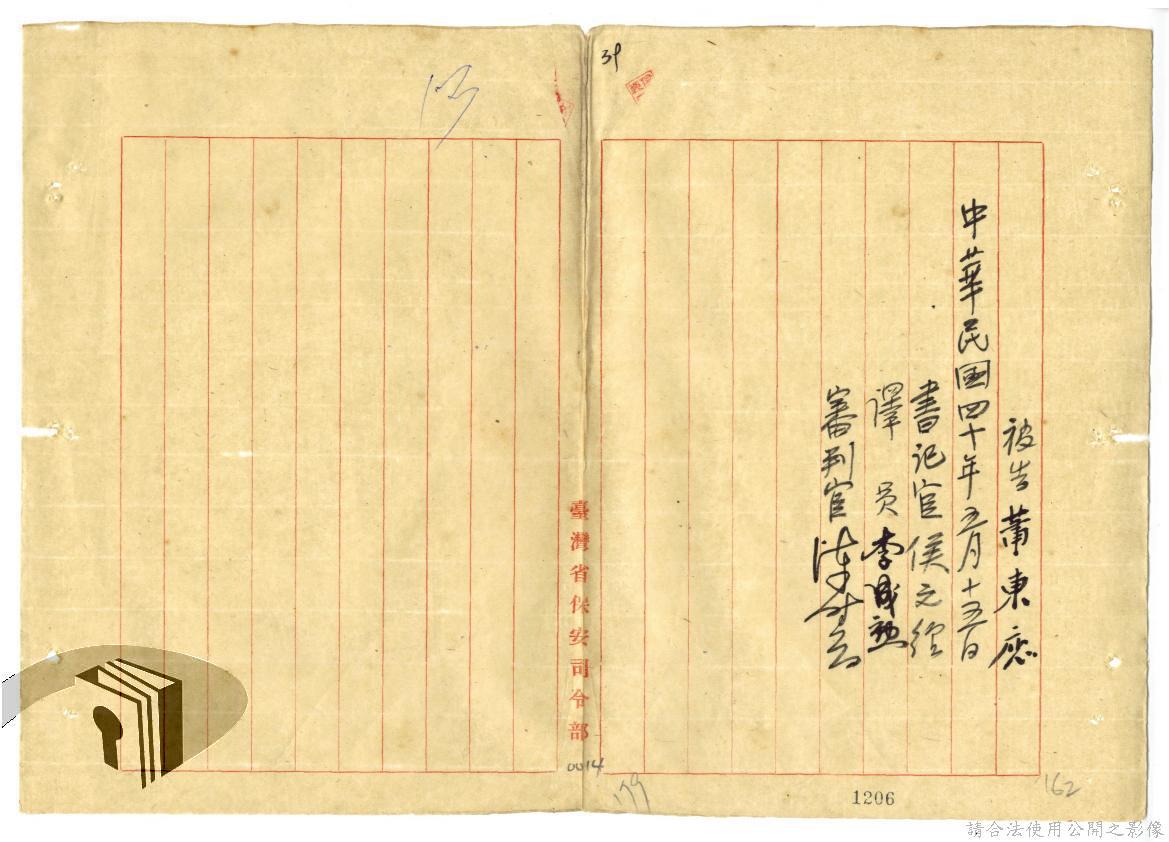 39
被告 蕭東應
中華民國四十年五月十五日
書記官 侯元經
譯員 李咸勲
審判官
臺灣省保安司令部
0014
179
1206
162
請合法使用公開之影像